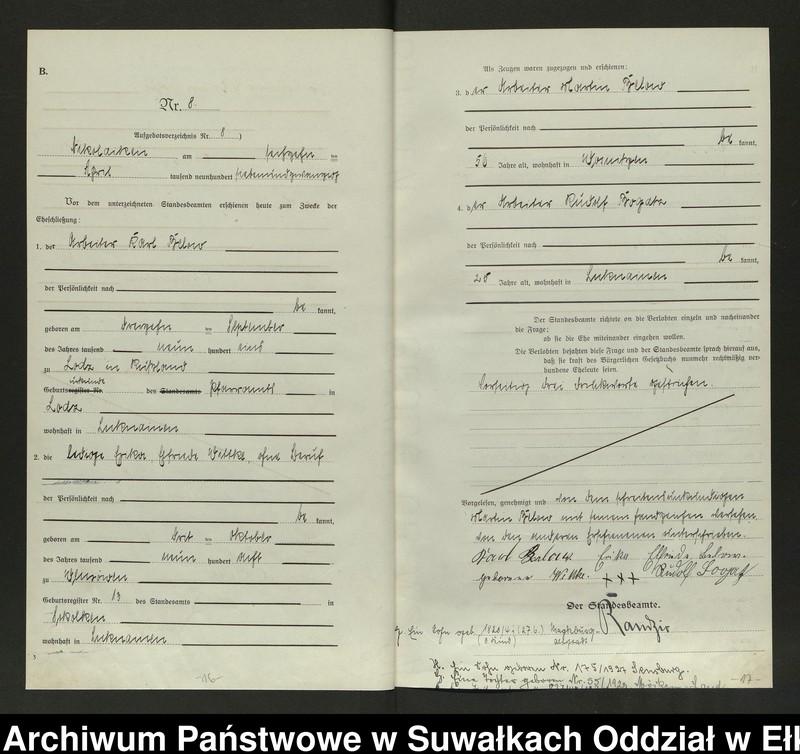 B.
Nr. 8.
Aufgebotsverzeichnis Nr. 8 )
Nikolaiken am sechzehn ten
April tausend neunhundert siebenundzwanzig
Vor dem unterzeichneten Standesbeamten erschienen heute zum Zwecke der
Eheschließung:
1. der Arbeiter Karl Below
der Persönlichkeit nach
be kannt,
geboren am dreizehn ten September
des Jahres tausend neun hundert eins
zu Lodz in Rußland
urkunde
Geburtsregister Nr. des Standesamts Pfarramts in
Lodz
wohnhaft in Luknainen
2. die ledige Erika Elfriede Wittke, ohne Beruf
der Persönlichkeit nach
be kannt,
geboren am drit ten Oktober
des Jahres tausend neun hundert acht
zu
Geburtsregister Nr. 13 des Standesamts in
wohnhaft in Luknainen
-16-
Als Zeugen waren zugezogen und erschienen:
3. der Arbeiter Martin Below
der Persönlichkeit nach
be kannt,
56 Jahre alt, wohnhaft in
4. der Arbeiter Rudolf
der Persönlichkeit nach
be kannt,
28 Jahre alt, wohnhaft in Luknainen
Der Standesbeamte richtete an die Verlobten einzeln und nacheinander
die Frage:
ob sie die Ehe miteinander eingehen wollen.
Die Verlobten bejahten diese Frage und der Standesbeamte sprach hierauf aus,
daß sie kraft des Bürgerlichen Gesetzbuchs nunmehr rechtmäßig ver-
bundene Eheleute seien.
Vorseitig drei Druckworte gestrichen.
Vorgelesen, genehmigt und von dem schreibensunkundigen
Martin Below mit seinem Handzeichen versehen,
von den anderen Erschienenen unterschrieben.
Karl Below Erika Elfriede Below
geborene Wittke. +++ Rudolf
Der Standesbeamte.
Randzio
Ein Sohn geb.
Ein Sohn geboren Nr. 175/1927 Sensburg.
Eine Tochter geboren Nr. 55/1929
-17-
Archiwum Państwowe w Suwałkach Oddział w Eł